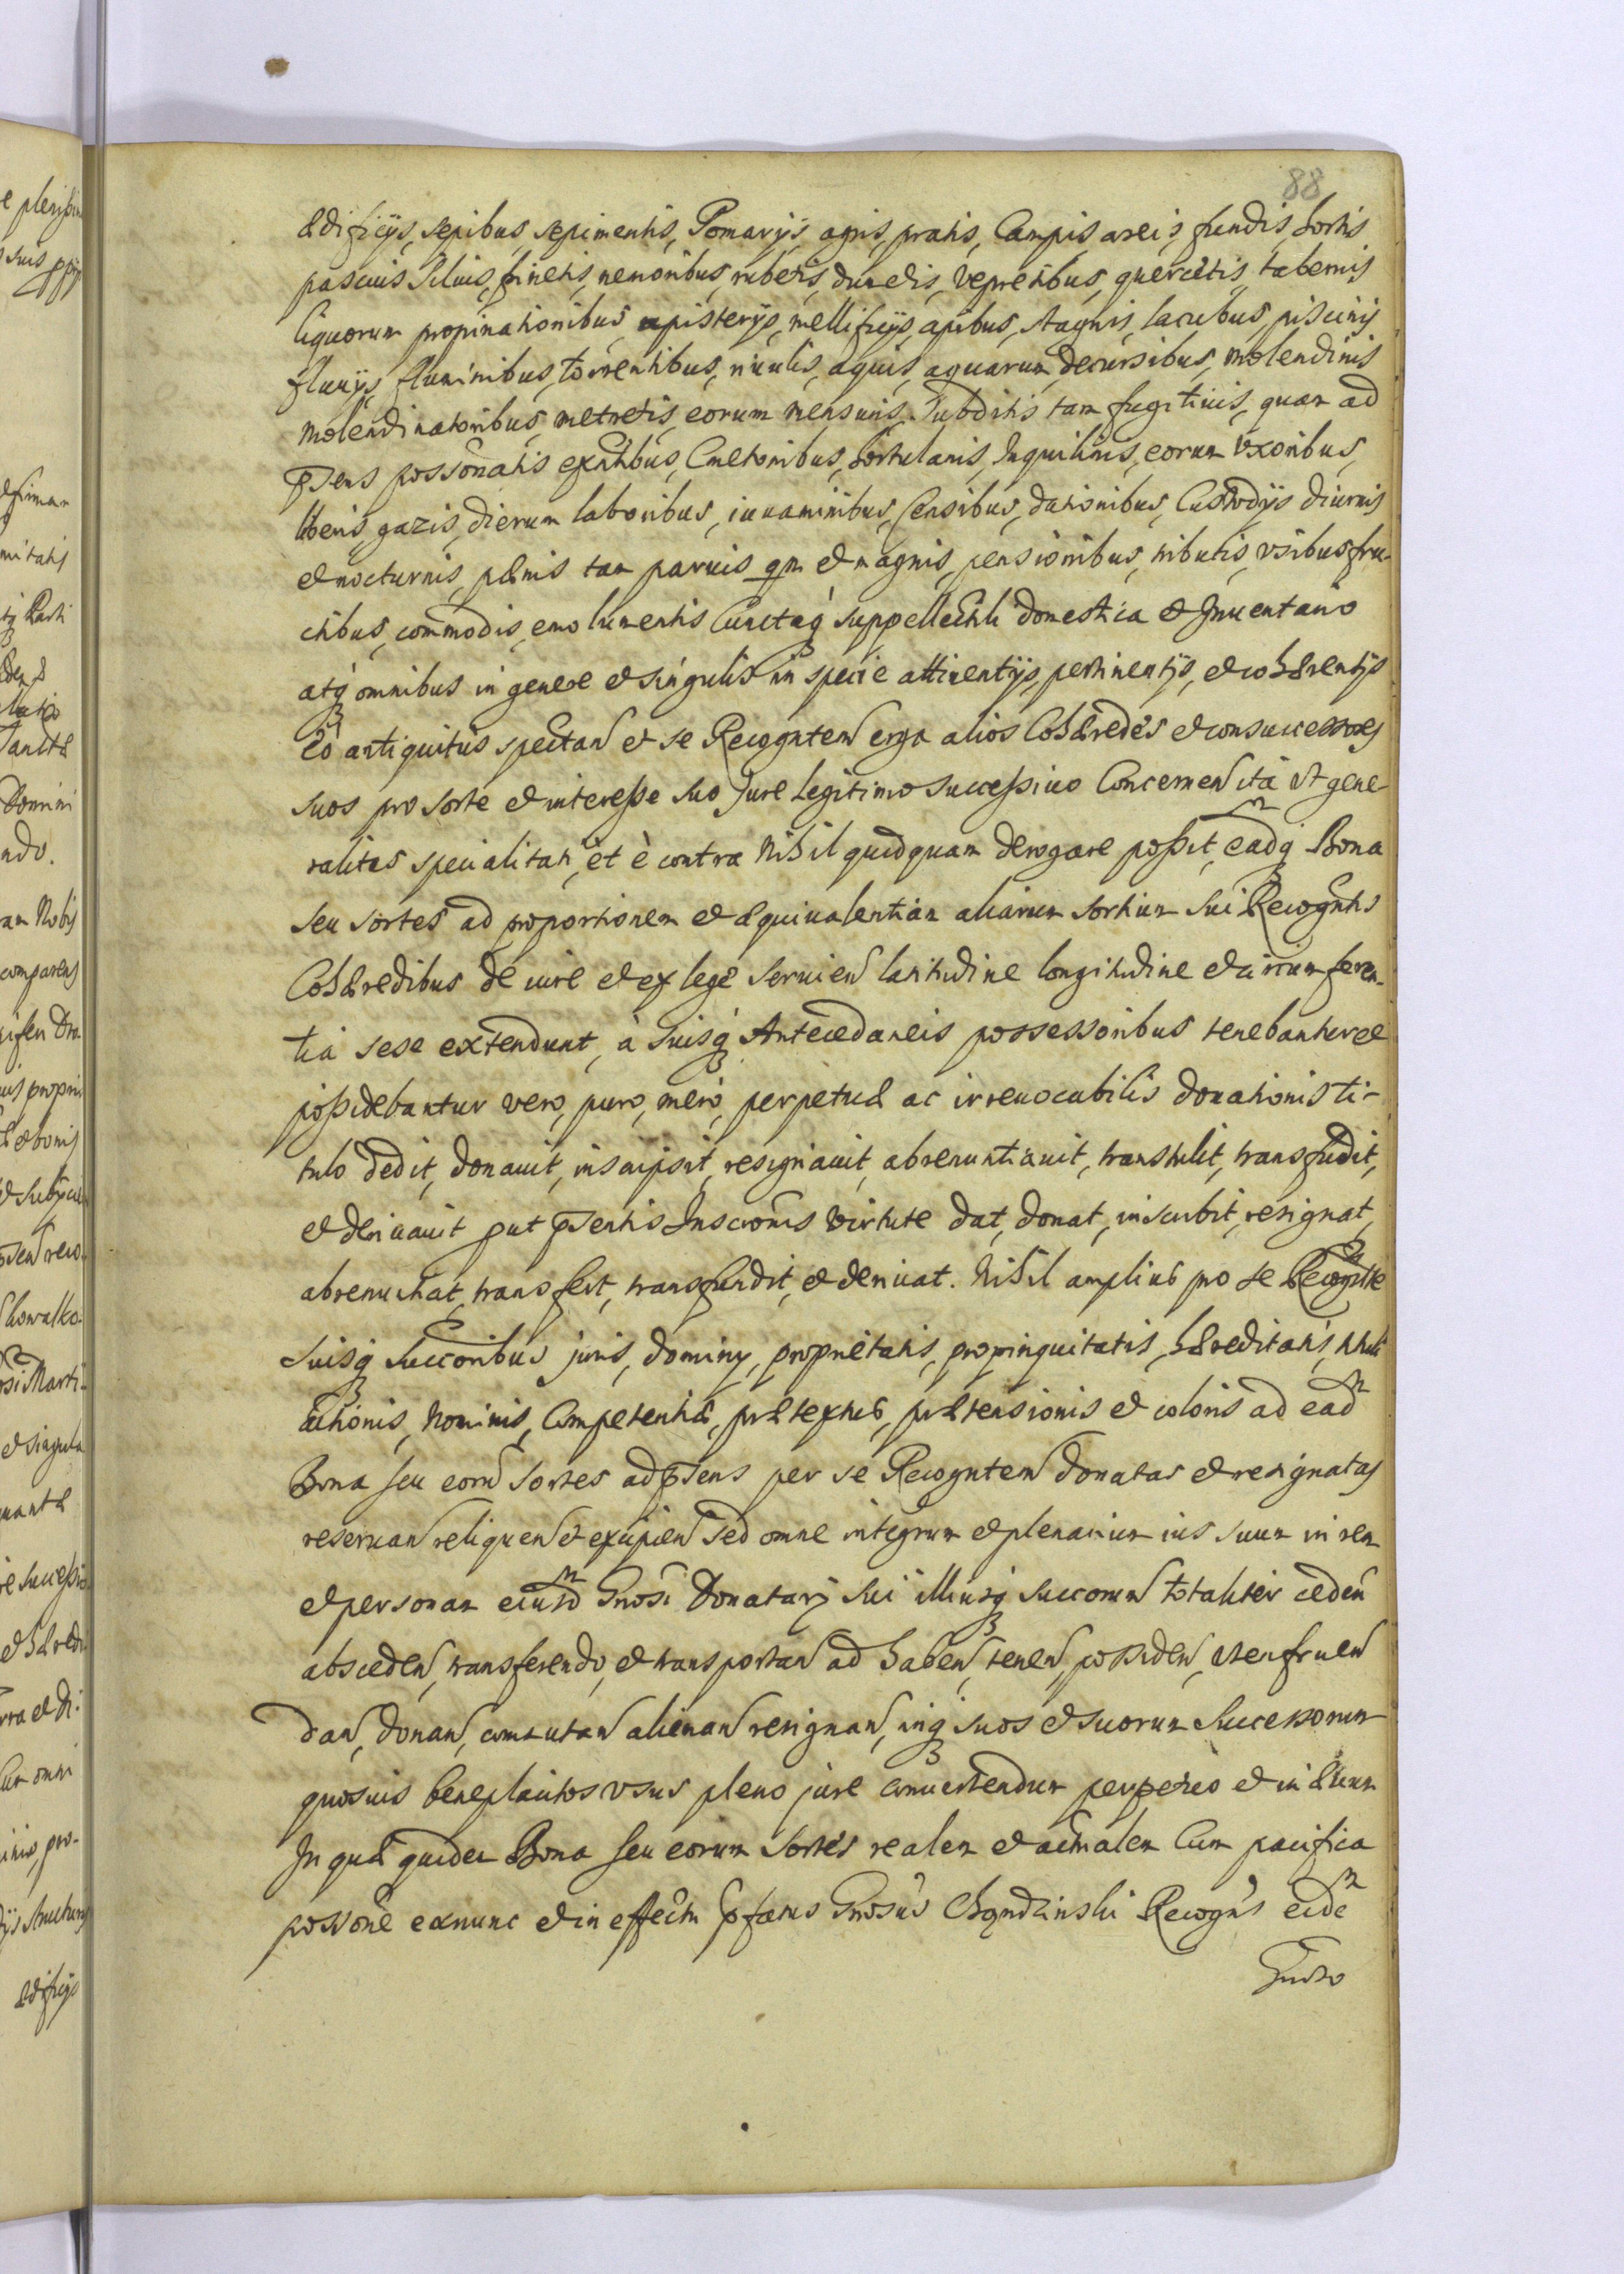 88
ædificÿs, sepibus, sepimentis, Pomarÿs, agris, pratis, Campis areis, fundis, hortis
pascuis Siluis, pinetis, nemoribus, rubetis, dumetis, vepretibus, quercetis, tabernis
liquorum propinationibus, apisterÿs, mellificÿs, apibus, stagnis, lacubus, piscinis
fluuÿs, fluminibus, torrentibus, riuulis, aquis, aquarum decursibus, molendinis
molendinatoribus, metretis, eorum mensuris, Subditis tam fugitiuis, quam ad
pns possõnatis exñtibus, Cmetonibus, hortulanis, Inquilinis, eorum Uxoribus,
liberis, gazis, dierum laboribus, iuuaminibus, Censibus, dationibus, Custodÿs diurnis
et nocturnis, pænis tam paruis qm et magnis, pensionibus, tributis, vsibusfru-
ctibus, commodis, emolumentis Cunctaq suppellectili domestica et Inuentario
atq omnibus in genere et singulis in specie attinentÿs, pertinentÿs, et cohærentÿs
eò antiquitùs spectan et se Recognten erga alios Cohæredes et consuccessores
suos pro sorte et interesse suo Jure legitimo successiuo Concernen ità vt gene-
ralitas specialitati, et è contra Nihil quidquam derogare possit, eadq Bona
seu sortes ad proportionem et æquiualentiam aliarum sortium sui Recogntis
Cohæredibus de iure et ex lege seruien latitudine longitudine et circumferen-
tia sese extendunt, à suisq Antecedaneis possessoribus tenebantur et
possidebantur vero, puro, mero, perpetuæ ac irreuocabilis donationis ti-
tulo dedit, donauit, inscripsit, resignauit, abrenuntiauit, transtulit, transfudit,
et deriuauit put pntis Inscrõnis virtute dat, donat, inscribit, resignat,
abrenunciat, transfert, transfundit, et deriuat. Nihil amplius pro se Recogntte
suisq Succoribus juris, dominÿ, proprietatis, propinquitatis, hæreditatis, tituli
actionis, Nominis, Competentiæ, prætextus, prætensionis et coloris ad ead
Bona seu eorũ sortes ad pns per se Recognten donatas et resignatas
reseruan reliquen et excipien sed omne integrum et plenarium ius suum in rem
et personam eiusd Gnosi Donatarÿ sui illiusq succorum totaliter ceden
absceden, transferendo, et transportan ad haben, tenen, possiden, vtenfruen
dan, donan, commutan alienan resignan, inq suos et suorum Successorum
quosuis beneplacitos vsus pleno jure conuertendum perpetuo et in æuum
In quæ quidem Bona seu eorum Sortes realem et actualem Cum pacifica
possone exnunc et in effectu pfatus Gnosus Chądzinski Recogns eide
Gnoso